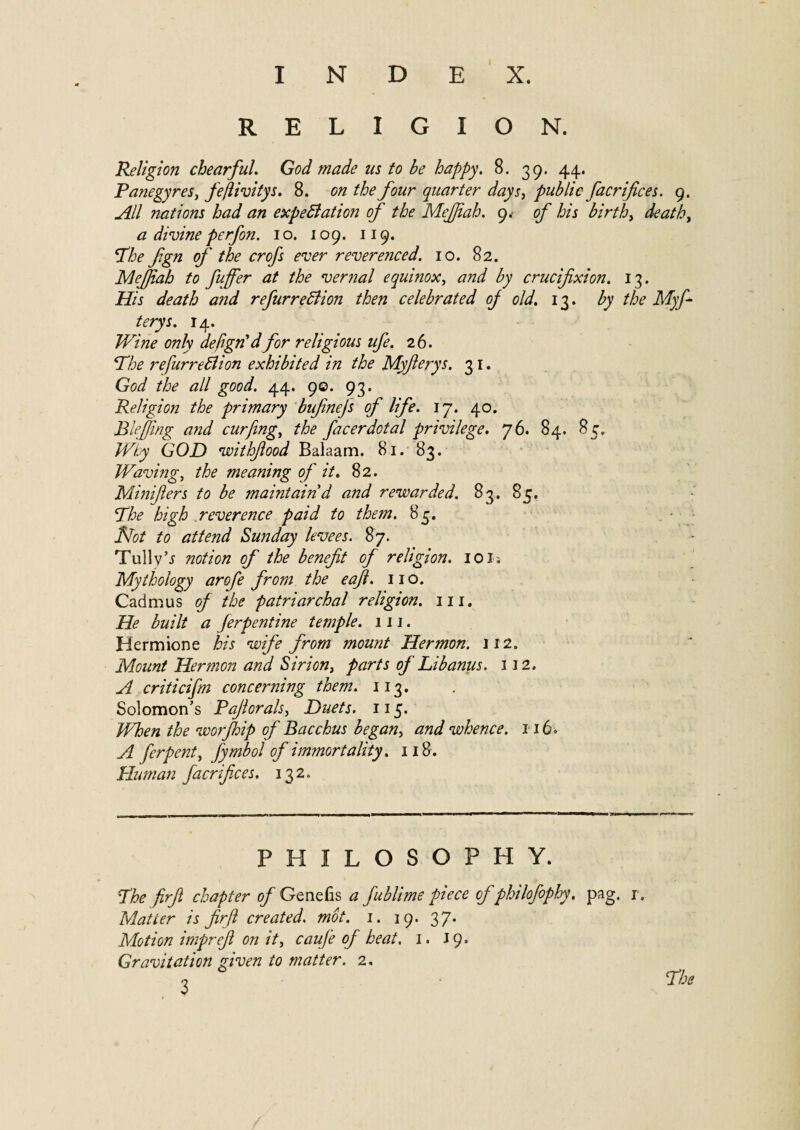 INDEX.
RELIGION.
Religion chearful. God made us to be happy. 8. 39. 44.
Panegyres, feſtivitys. 8. on the four quarter days, public ſacrifices. 9.
All nations had an expectation of the Meſſiah. 9. of his birth, death,
a divine perſon. 10. 109. 119.
The ſign of the croſs ever reverenced. 10. 82.
Meſſiah to ſuffer at the vernal equinox, and by crucifixion. 13.
His death and reſurrection then celebrated of old. 13. by the Myſ-
terys. 14.
Wine only deſign'd for religious uſe. 26.
The reſurrection exhibited in the Myſterys. 31.
God the all good. 44. 90. 93.
Religion the primary buſineſs of life. 17. 40.
Bleſſing and curſing, the ſacerdotal privilege. 76. 84. 85.
Why GOD withſtood Balaam. 81. 83.
Waving, the meaning of it. 82.
Miniſters to be maintain'd and rewarded. 83. 85.
The high reverence paid to them. 85.
Not to attend Sunday levees. 87.
Tully's notion of the benefit of religion. 101.
Mythology aroſe from the eaſt. 110.
Cadmus of the patriarchal religion. 111.
He built a ſerpentine temple. 111.
Hermione his wife from mount Hermon. 112.
Mount Hermon and Sirion, parts of Libanus. 112.
A criticiſm concerning them. 113.
Solomon's Paſtorals, Duets. 115.
When the worſhip of Bacchus began, and whence. 116.
A ſerpent, ſymbol of immortality. 118.
Human ſacrifices. 132.
PHILOSOPHY.
The firſt chapter of Geneſis a ſublime piece of philoſophy. pag. 1.
Matter is firſt created. mot. 1. 19. 37.
Motion impreſt on it, cauſe of heat. 1. 19.
Gravitation given to matter. 2.
3 The